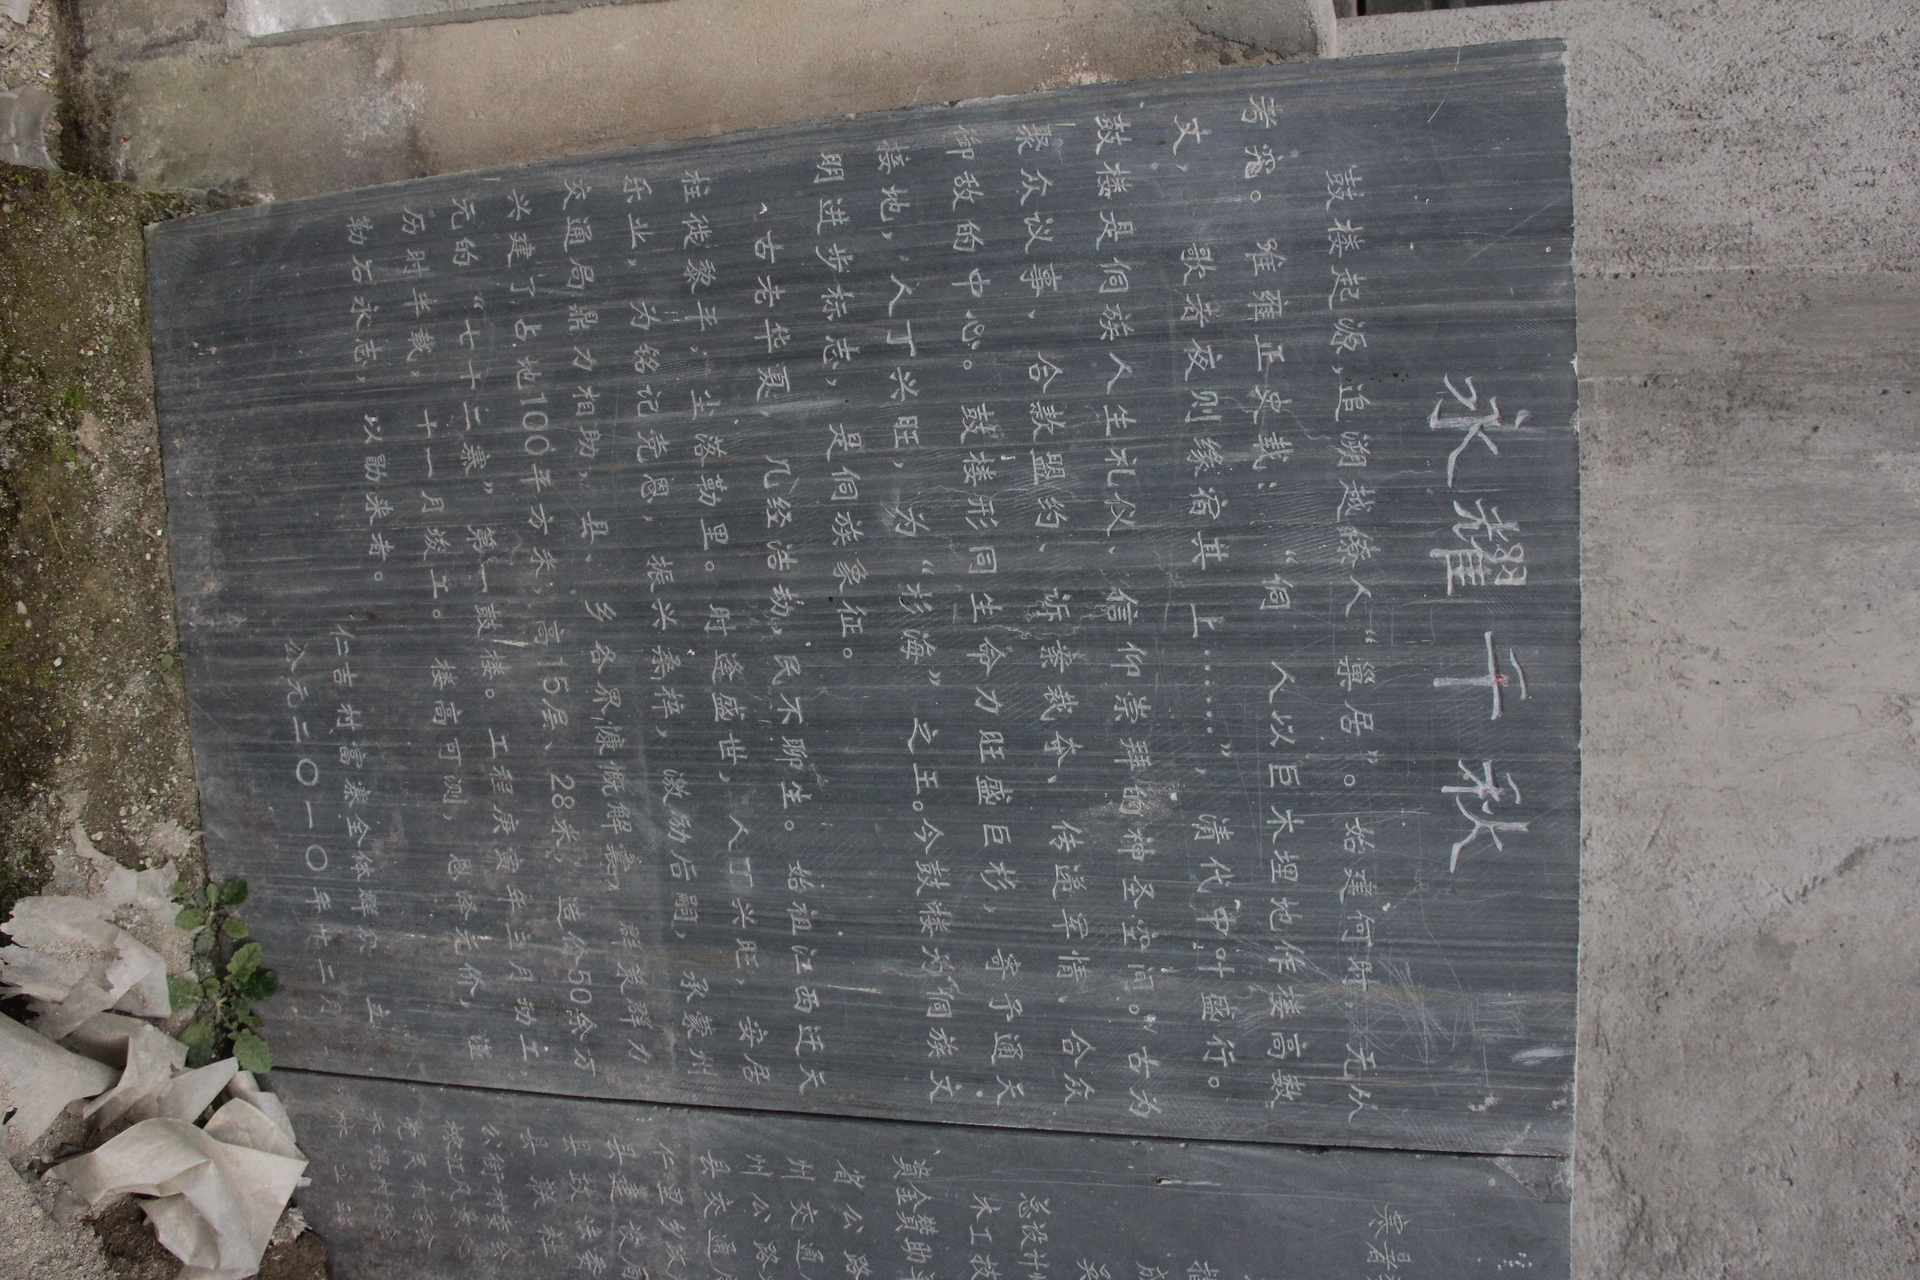 永耀千秋
鼓楼起源,追溯越僚人“巢居”。始建何时,无从
考究。唯雍正史载:“侗 人以巨木埋地作楼高数
丈,歌者夜则缘宿其 上……”,清代中叶盛行。
鼓楼是侗族人生礼仪、信仰崇拜的神圣空间。古为
聚众议事、合款盟约、诉案裁夺、传递军情、合众
御敌的中心。鼓楼形同生命力旺盛巨杉,寄予通天
接地,人丁兴旺,为“杉海”之王。今鼓楼乃侗族文
明进步标志,是侗族象征。
古老华夏,几经浩劫,民不聊生。始祖江西迁天
柱徙黎平,坐落勒里。时逢盛世,人丁兴旺,安居
乐业,为铭记党恩,振兴桑梓,激励后嗣,承蒙州
交通局鼎力相助,县、乡各界慷慨解囊,群策群力
兴建了占地100平方米,高15层、28米,造价50余万
元的“七十二寨”第一鼓楼。工程庚寅年三月动工,
历时半载,十一月竣工。楼高可测,恩泽无价,谨
勒石永志,以勖来者。
仁吉村富寨全体群众 立
公元二〇一〇年十二月
总设计师
木工技
资金赞助单
省公路
州公路
州交通
县交通
仁里乡政
县建设局
县政法委
县 联 社